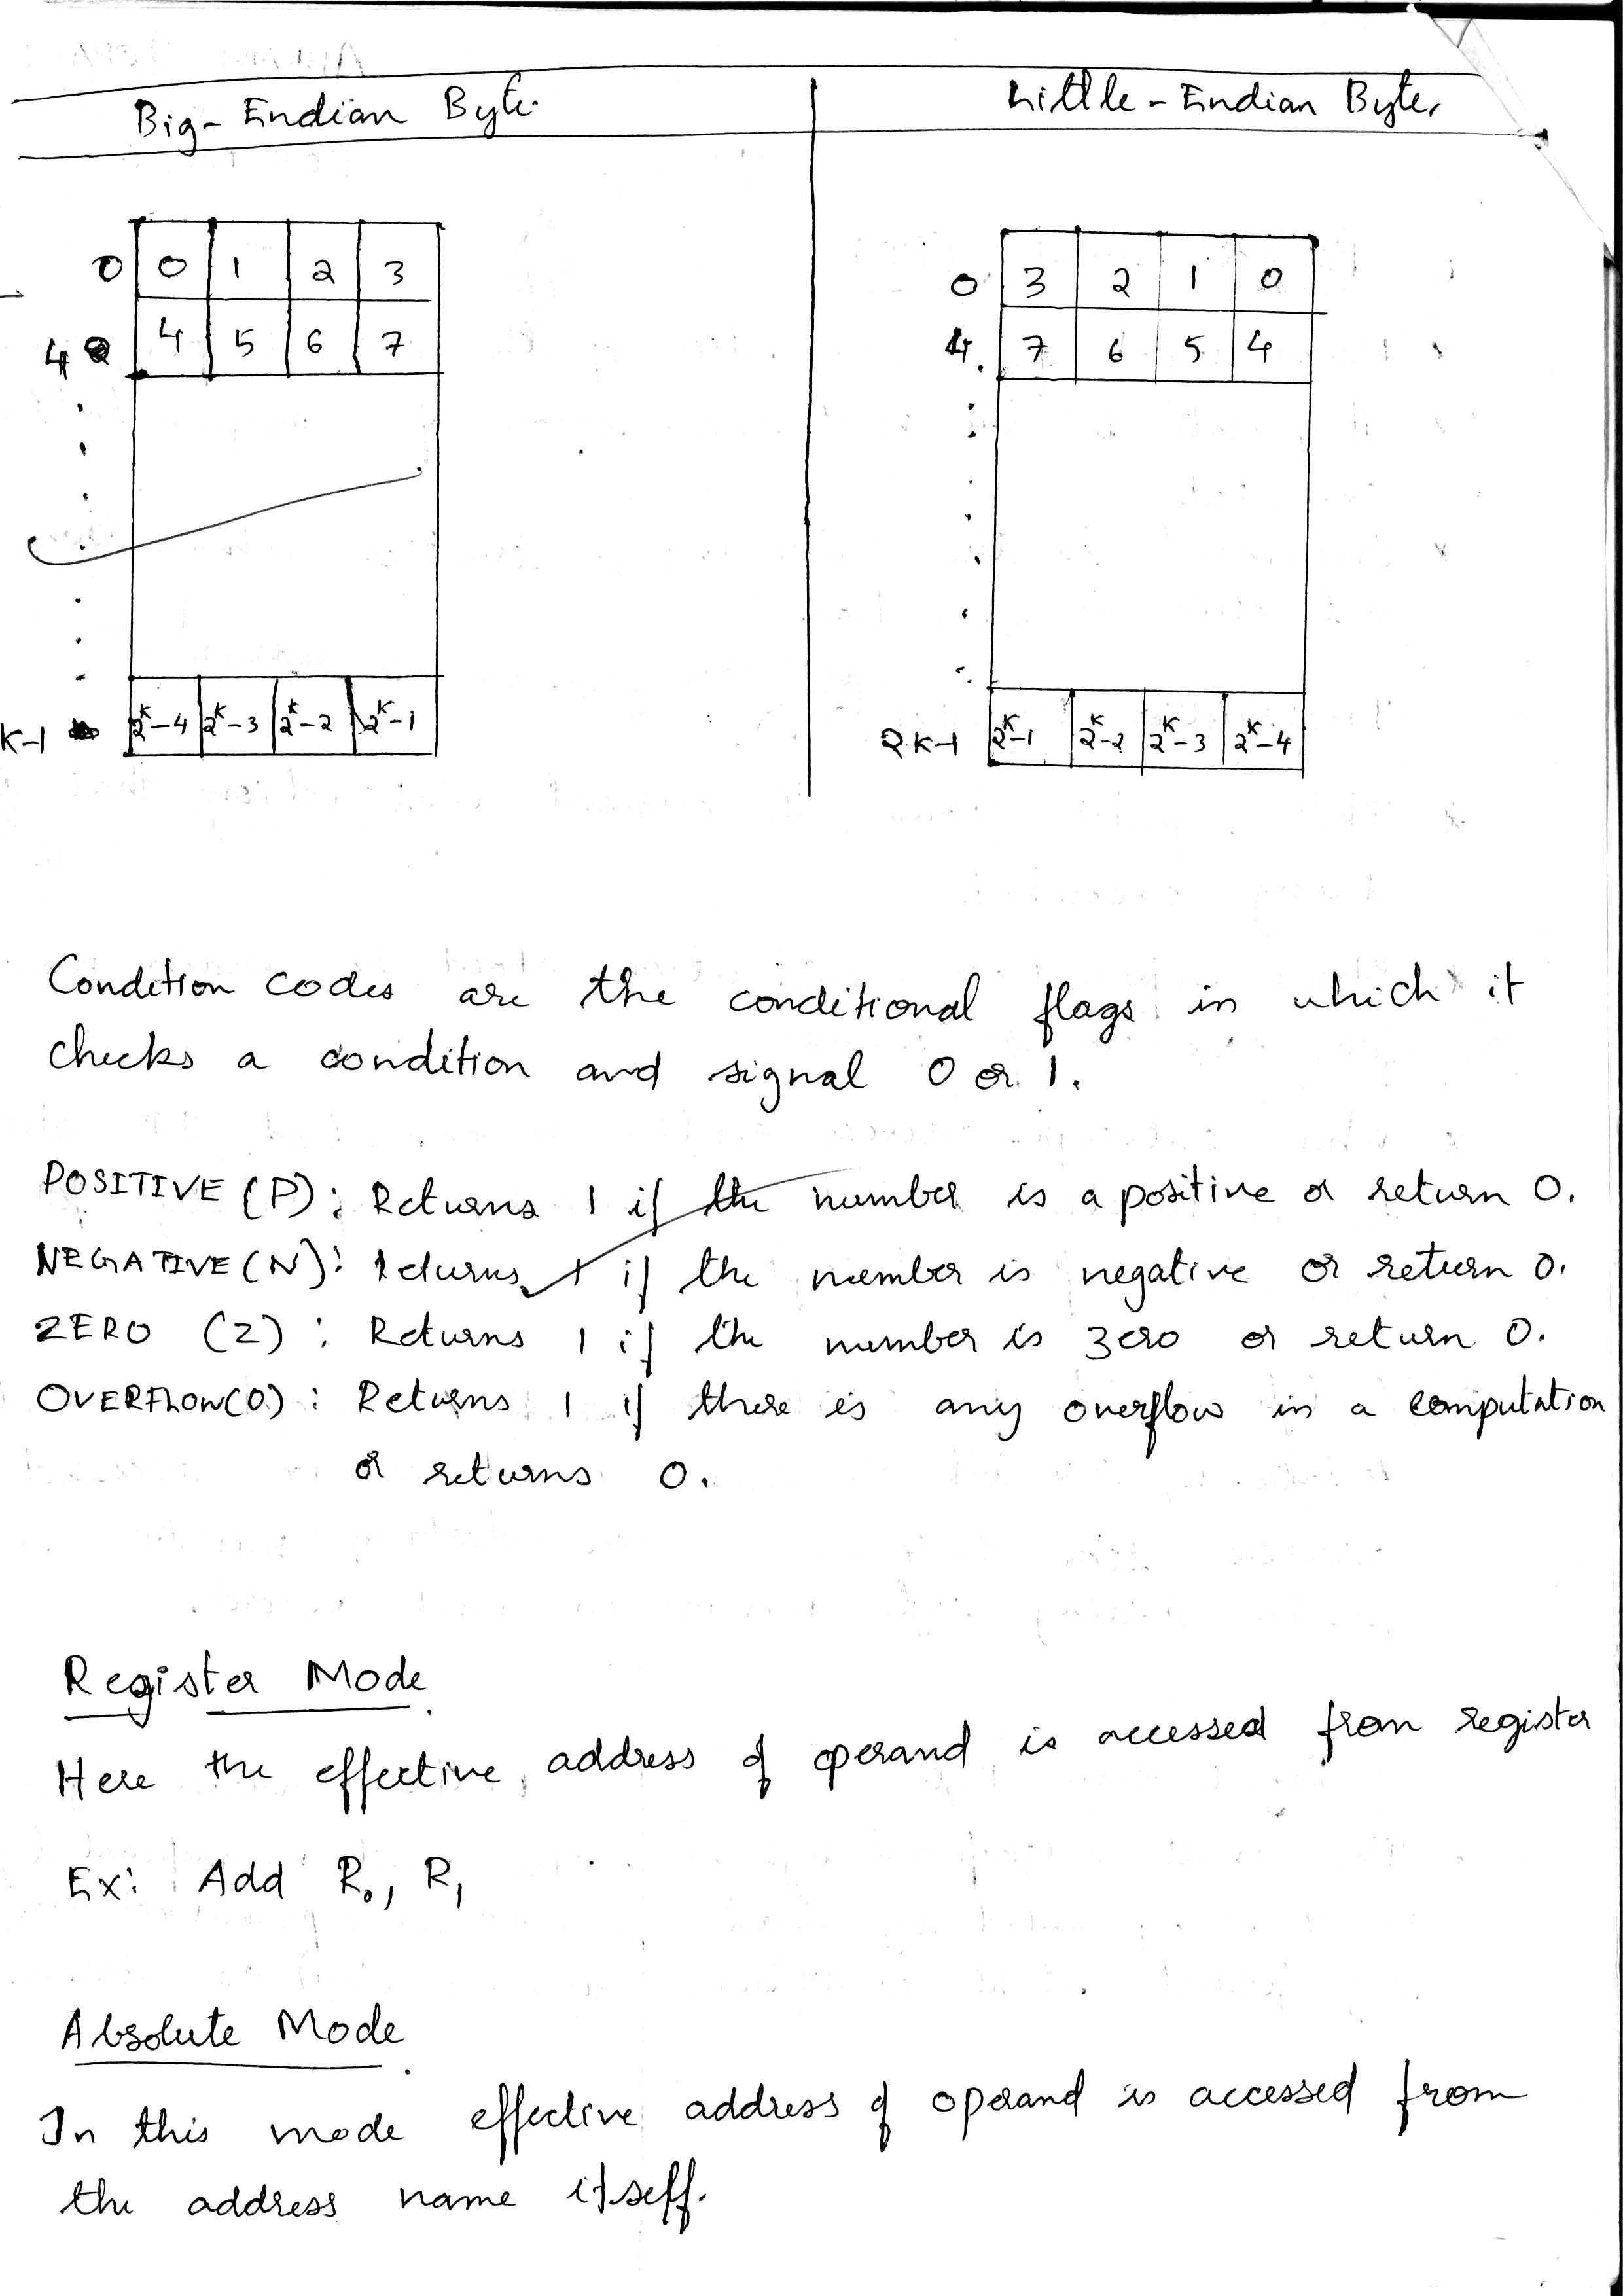 Big-Endian Byte.
Little-Endian Byte.
0 0 1 2 3
4 4 5 6 7
K-1 2^K-4 2^K-3 2^K-2 2^K-1
0 3 2 1 0
4 7 6 5 4
2K-1 2^K-1 2^K-2 2^K-3 2^K-4
Condition codes are the conditional flags in which it
checks a condition and signal 0 or 1.
POSITIVE (P): Returns 1 if the number is a positive or return 0.
NEGATIVE (N): Returns 1 if the number is negative or return 0.
ZERO (Z): Returns 1 if the number is zero or return 0.
OVERFLOW(O): Returns 1 if there is any overflow in a computation
or returns 0.
Register Mode
Here the effective address of operand is accessed from register
Ex: Add R0, R1
Absolute Mode
In this mode effective address of operand is accessed from
the address name itself.